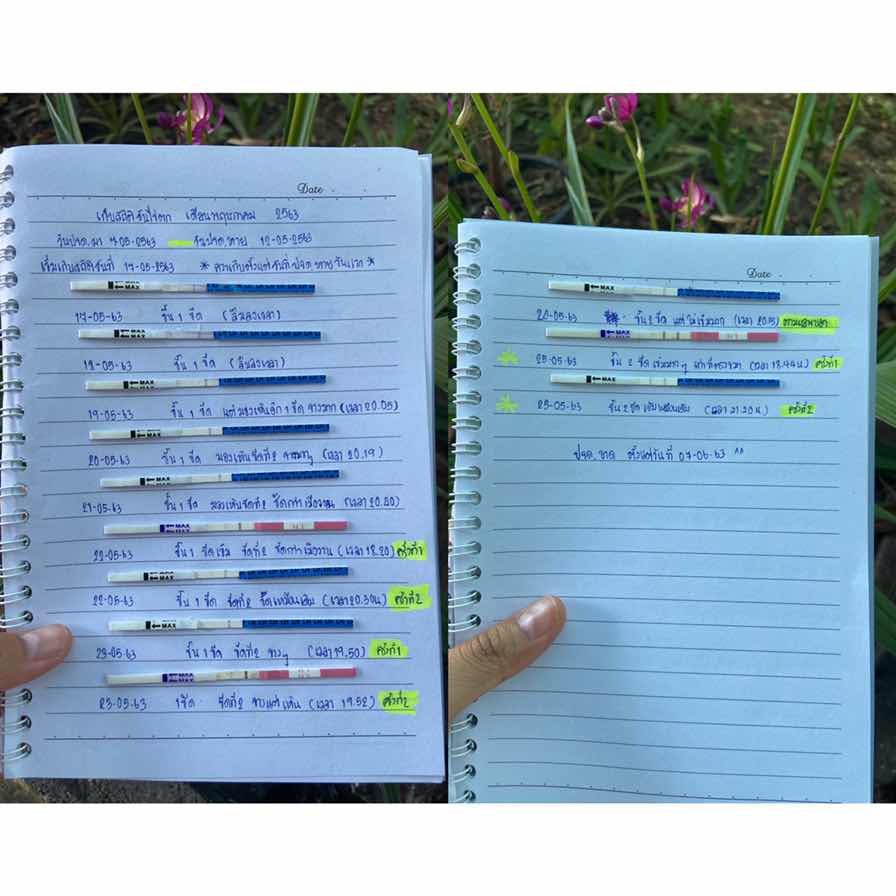 Date
เก็บสถิติวันไข่ตก เดือนพฤษภาคม 2563
วันปจด.มา 7-05-2563 วันปจด.หาย 12-05-2563
เริ่มเก็บสถิติวันที่ 17-05-2563 * ควรเก็บตั้งแต่วันที่ปจด.หายวันแรก *
MAX
MAX
17-05-63 ขึ้น 1 ขีด (ลืมลงเวลา)
MAX
MAX
18-05-63 ขึ้น 1 ขีด (ลืมลงเวลา)
MAX
MAX
19-05-63 ขึ้น 1 ขีด แต่มองเห็นอีก 1 ขีด จางมาก (เวลา 20.05)
MAX
MAX
20-05-63 ขึ้น 1 ขีด มองเห็นขีดที่2 จางมากๆ (เวลา 20.19)
MAX
MAX
21-05-63 ขึ้น 1 ขีด มองเห็นขีดที่2 ชัดกว่าเมื่อวาน (เวลา 20.20)
MAX
MAX
22-05-63 ขึ้น 1 ขีดเข้ม ขีดที่2 ชัดกว่าเมื่อวาน (เวลา 18.20) ครั้งที่1
MAX
MAX
22-05-63 ขึ้น 1 ขีด ขีดที่2 ชัดเหมือนเดิม (เวลา 20.30น) ครั้งที่2
MAX
MAX
23-05-63 ขึ้น 1 ขีด ขีดที่2 จางๆ (เวลา 19.50) ครั้งที่1
MAX
MAX
23-05-63 1 ขีด ขีดที่2 จางแต่เห็น (เวลา 19.52) ครั้งที่2
Date
MAX
MAX
ขึ้น 2 ขีด แต่ไม่เข้มมาก (เวลา 20.15)
MAX
MAX
25-05-63 ขึ้น 2 ขีด เข้มมากๆ (เวลา 18.44น) ครั้งที่1
MAX
MAX
25-05-63 ขึ้น 2 ขีด เข้มเหมือนเดิม (เวลา 21.20น.) ครั้งที่2
ปจด.ขาด ตั้งแต่วันที่ 07-06-63 ^^